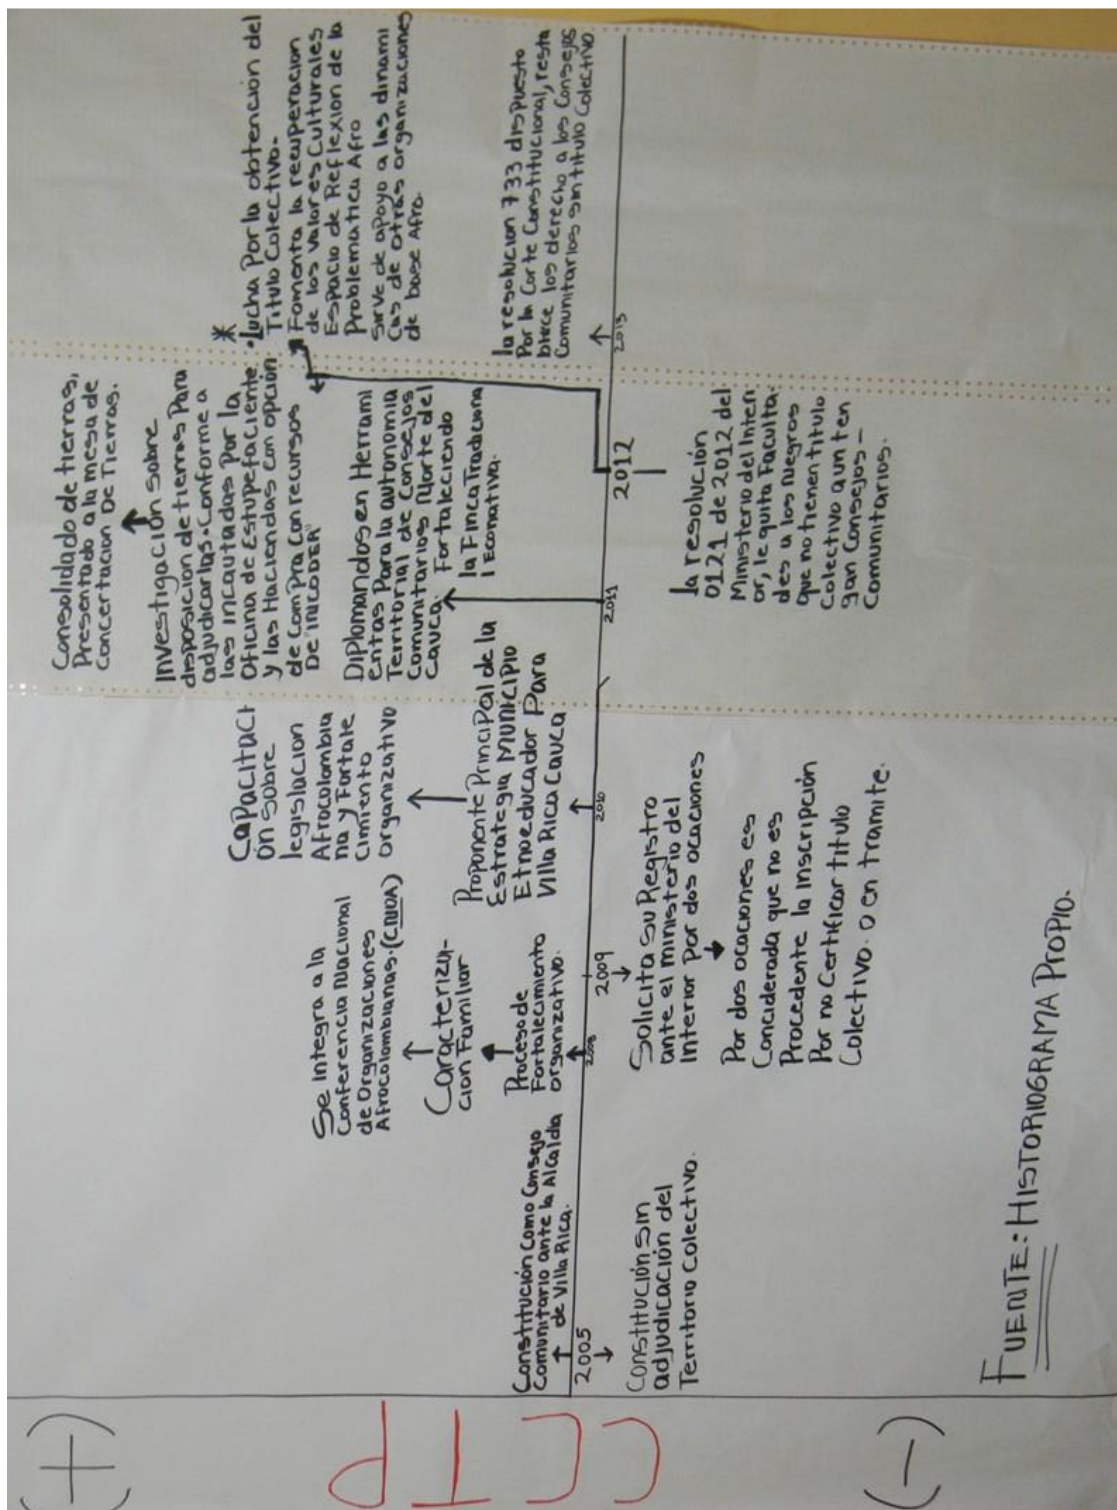 (+)
CCTP
(-)
Constitución Como Consejo
Comunitario ante la Alcaldia
de Villa Rica.
2005
Constitución sin
adjudicación del
Territorio Colectivo.
Se integra a la
Conferencia Nacional
de Organizaciones
Afrocolombianas.(CNOA)
Caracteriza-
cion Familiar
Proceso de
Fortalecimiento
organizativo.
2008
2009
Solicita su Registro
ante el ministerio del
Interior Por dos ocaciones
Por dos ocaciones es
Conciderada que no es
Procedente la inscripción
Por no Certificar titulo
Colectivo. o en tramite.
Capacitaci
ón sobre
legislacion
Afrocolombia
na y Fortale
Cimiento
organizativo
Proponente Principal de la
Estrategia Municipio
Etnoeducador Para
Villa Rica Cauca
2010
Consolidado de tierras,
Presentado a la mesa de
Concertacion De Tierras.
Investigación sobre
disposicion de tierras Para
adjudicarlas. Conforme a
las incautadas Por la
Oficina de Estupefaciente
y las Haciendas con opción
de Compra Con recursos
De "INCODER"
Diplomandos en Herrami
entas Para la autonomia
Territorial de Consejos
Comunitarios Norte del
Cauca. Fortaleciendo
la Finca Tradiciona
l Econativa.
2011
2012
la resolución
0121 de 2012 del
Ministerio del Interi
or, le quita Faculta
des a los Negros
que no tienen titulo
Colectivo aun ten
gan Consejos -
Comunitarios.
*
•Lucha Por la obtención del
Titulo Colectivo.
Fomenta la recuperacion
de los valores Culturales
Espacio de Reflexion de la
Problematica Afro
Sirve de apoyo a las dinami
Cas de otras organizaciones
de base Afro.
la resolucion 733 dispuesto
Por la Corte Constitucional, resta
blece los derecho a los Consejos
Comunitarios sin titulo Colectivo.
2013
FUENTE: HISTORIOGRAMA PROPIO.